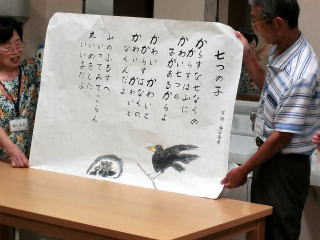 七つの子
からすなぜなくの
からすは山に
かわいい七つの
子があるからよ
かわいい かわいと
からすはなくの
かわいい かわいと
なくんだよ
山のふるすへ
いってみてごらん
丸い目をした
いい子だよ